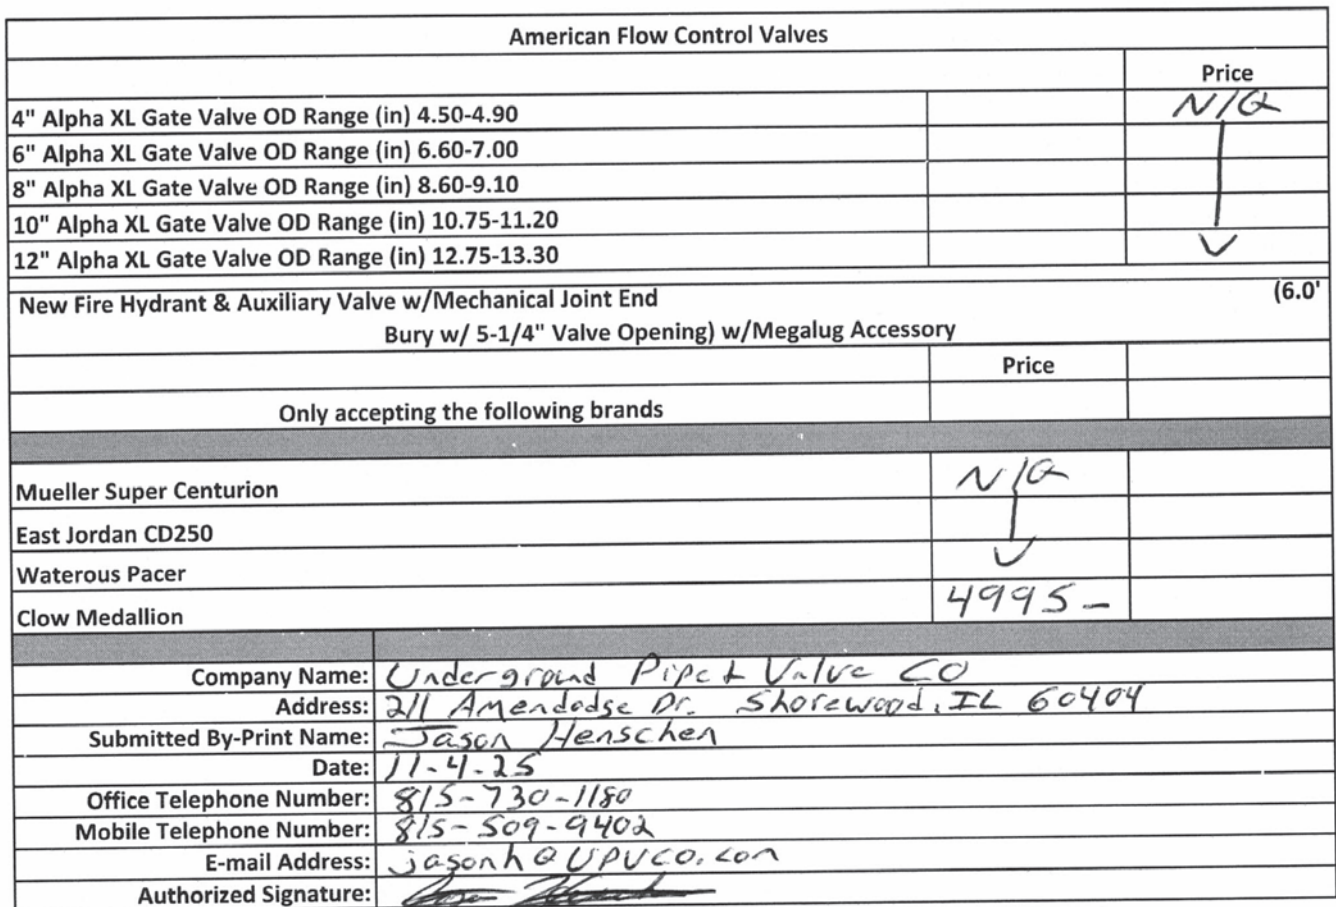 American Flow Control Valves
Price
4" Alpha XL Gate Valve OD Range (in) 4.50-4.90 N/Q
6" Alpha XL Gate Valve OD Range (in) 6.60-7.00
8" Alpha XL Gate Valve OD Range (in) 8.60-9.10
10" Alpha XL Gate Valve OD Range (in) 10.75-11.20
12" Alpha XL Gate Valve OD Range (in) 12.75-13.30
New Fire Hydrant & Auxiliary Valve w/Mechanical Joint End (6.0'
Bury w/ 5-1/4" Valve Opening) w/Megalug Accessory
Price
Only accepting the following brands
Mueller Super Centurion N/Q
East Jordan CD250
Waterous Pacer
Clow Medallion 4995-
Company Name: Underground Pipe & Valve CO
Address: 211 Amendodge Dr. Shorewood, IL 60404
Submitted By-Print Name: Jason Henschen
Date: 11-4-25
Office Telephone Number: 815-730-1180
Mobile Telephone Number: 815-509-9402
E-mail Address: jasonh@UPVCO.com
Authorized Signature: